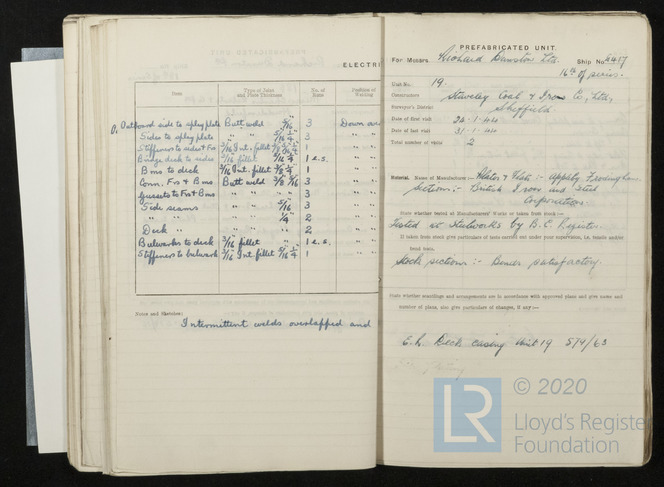 ELECTRI
Item
Type of Joint and Plate Thickness
No. of Runs
Position of Welding
Outboard side to splay plate Butt weld 5/16" 3 Down
Sides to splay plate " " 3 " "
Stiffeners to sides + Frs 3/16 Int. fillet 1 " "
Bridge deck to sides 3/16 fillet 1 e.s. " "
Bms to deck 3/16 Int. fillet 3/8 1/4 1 " "
Conn. Frs + Bms Butt weld 3/8 5/16 3 " "
Gussets to Frs + Bms " " 3 " "
Side seams " " 5/16 3 " "
" " " " 1/4 2 " "
Deck " " " " 2 " "
Bulwarks to deck 3/16 fillet 1 e.s. " "
Stiffeners to bulwark 3/16 Int fillet 5/16 1/4 1 " "
Notes and Sketches:
Intermittent welds overlapped and
PREFABRICATED UNIT.
For Messrs. Richard Dunston Ltd. Ship No. 4417
16th of series.
Unit No. 19.
Constructors Staveley Coal & Iron Co, Ltd,
Surveyor's District Sheffield.
Date of first visit 24.1.44
Date of last visit 31.1.44
Total number of visits 2
Material. Name of Manufacturer: Plates & Flats :- Appleby Frodingham
Sections :- British Iron and Steel
Corporation
State whether tested at Manufacturers' Works or taken from stock :—
Tested at Steelworks by B.C. Register.
If taken from stock give particulars of tests carried out under your supervision, i.e. tensile and/or
Bend tests.
Stock sections :- Bends satisfactory.
State whether scantlings and arrangements are in accordance with approved plans and give name and
number of plans, also give particulars of changes, if any :—
E.R. Deck casing Unit 19 574/63
LR
© 2020
Lloyd's Register
Foundation